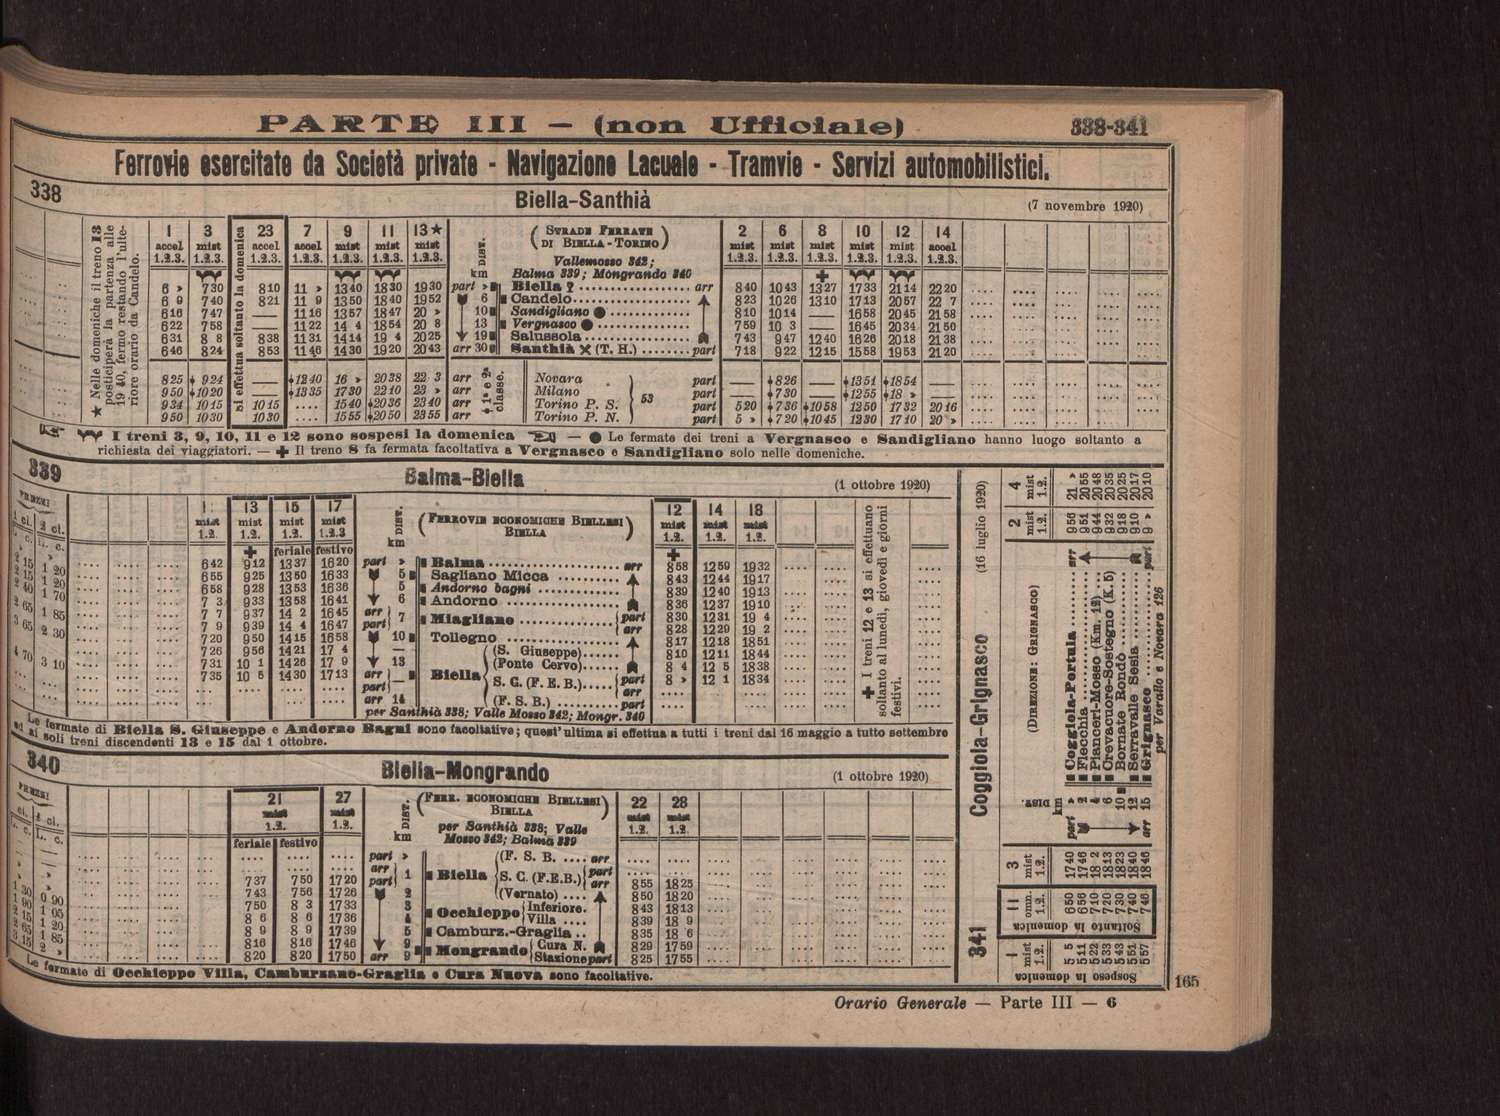 PARTE III — (non Ufficiale)
338-341
Ferrovie esercitate da Società private - Navigazione Lacuale - Tramvie - Servizi automobilistici.
338
Biella-Santhià
(7 novembre 1920)
★ Nelle domeniche il treno 13
posticiperà la partenza alle
19 40, fermo restando l'ulte-
riore orario da Candelo.
si effettua soltanto la domenica
1 3 23 7 9 11 13★ DIST. (STRADE FERRATE 2 6 8 10 12 14
accel mist accel accel mist mist mist DI BIELLA-TORINO) mist mist mist mist mist accel
1.2.3. 1.2.3. 1.2.3. 1.2.3. 1.2.3. 1.2.3. 1.2.3. Vallemosso 342; 1.2.3. 1.2.3. 1.2.3. 1.2.3. 1.2.3. 1.2.3.
km Balma 339; Mongrando 340
6 » 7 30 8 10 11 » 13 40 18 30 19 30 part » Biella arr 8 40 10 43 13 27 17 33 21 14 22 20
6 9 7 40 8 21 11 9 13 50 18 40 19 52 6 Candelo 8 23 10 26 13 10 17 13 20 57 22 7
6 16 7 47 — 11 16 13 57 18 47 20 » 10 Sandigliano ● 8 10 10 14 — 16 58 20 45 21 58
6 22 7 58 — 11 22 14 4 18 54 20 8 13 Vergnasco ● 7 59 10 3 — 16 45 20 34 21 50
6 31 8 8 8 38 11 31 14 14 19 4 20 25 19 Salussola 7 43 9 47 12 40 16 26 20 18 21 38
6 46 8 24 8 53 11 46 14 30 19 20 20 43 arr 30 Santhià (T. H.) part 7 18 9 22 12 15 15 58 19 53 21 20
8 25 9 24 — 12 40 16 » 20 38 22 3 arr Novara part — 8 26 — 13 51 18 54 —
9 50 10 20 — 13 35 17 30 22 10 23 » arr Milano part — 7 30 — 12 55 18 » —
9 34 10 15 10 15 .... 15 40 20 36 23 40 arr Torino P. S. part 5 20 7 36 10 58 12 50 17 32 20 16
9 50 10 30 10 30 .... 15 55 20 50 23 55 arr Torino P. N. part 5 » 7 20 10 45 12 30 17 10 20 »
1ª e 2ª classe.
53
I treni 3, 9, 10, 11 e 12 sono sospesi la domenica — ● Le fermate dei treni a Vergnasco e Sandigliano hanno luogo soltanto a
richiesta dei viaggiatori. — ✚ Il treno 8 fa fermata facoltativa a Vergnasco e Sandigliano solo nelle domeniche.
339
Balma-Biella
(1 ottobre 1920)
PREZZI
1 cl. 2 cl.
L. c. L. c.
1 13 15 17 DIST. (FERROVIE ECONOMICHE BIELLESI) 12 14 18
mist mist mist mist BIELLA mist mist mist
1.2. 1.2. 1.2. 1.2.3 km 1.2. 1.2. 1.2.
✚ feriale festivo ✚
6 42 9 12 13 37 16 20 part » Balma arr 8 58 12 59 19 32
6 55 9 25 13 50 16 33 5 Sagliano Micca 8 43 12 44 19 17
6 58 9 28 13 53 16 36 5 Andorno bagni 8 39 12 40 19 13
7 3 9 33 13 58 16 41 6 Andorno 8 36 12 37 19 10
7 7 9 37 14 2 16 45 arr 7 Miagliano part 8 30 12 31 19 4
7 9 9 39 14 4 16 47 part arr 8 28 12 29 19 2
7 20 9 50 14 15 16 58 10 Tollegno 8 17 12 18 18 51
7 26 9 56 14 21 17 4 — (S. Giuseppe) 8 10 12 11 18 44
7 31 10 1 14 26 17 9 13 (Ponte Cervo) 8 4 12 5 18 38
7 35 10 5 14 30 17 13 arr Biella S. C. (F. E. B.) part 8 » 12 1 18 34
part — arr
arr 14 (F. S. B.) part
per Santhià 338; Valle Mosso 342; Mongr. 340
1 20
1 20
1 70
2 65 1 85
3 65 2 30
4 70 3 10
✚ I treni 12 e 13 si effettuano
soltanto al lunedì, giovedì e giorni
festivi.
Le fermate di Biella S. Giuseppe e Andorno Bagni sono facoltative; quest'ultima si effettua a tutti i treni dal 16 maggio a tutto settembre
ed ai soli treni discendenti 13 e 15 dal 1 ottobre.
340
Biella-Mongrando
(1 ottobre 1920)
PREZZI
cl. 2 cl.
L. c. L. c.
21 27 DIST. (FERR. ECONOMICHE BIELLESI) 22 28
mist mist BIELLA mist mist
1.2. 1.2. km per Santhià 338; Valle 1.2. 1.2.
feriale festivo Mosso 342; Balma 339
part » (F. S. B. arr
arr 1 Biella S. C. (F.E.B.) part
7 37 7 50 17 20 part arr 8 55 18 25
7 43 7 56 17 26 2 (Vernato) 8 50 18 20
7 50 8 3 17 33 3 Occhieppo Inferiore. 8 43 18 13
8 6 8 6 17 36 4 Villa 8 39 18 9
8 9 8 9 17 39 5 Camburz.-Graglia 8 35 18 6
8 16 8 16 17 46 9 Mongrando Cura N. 8 29 17 59
8 20 8 20 17 50 arr 9 Stazione part 8 25 17 55
1 30 0 90
1 90 1 05
2 15 1 20
2 65 1 85
3 15 2 »
Le fermate di Occhieppo Villa, Cambursano-Graglia e Cura Nuova sono facoltative.
341
Coggiola-Grignasco
(16 luglio 1920)
(DIREZIONE: GRIGNASCO)
1 11 3 DIST. 2 4
mist omn. mist km mist mist
1.2. 1.2. 1.2. 1.2. 1.2.
5 5 6 50 17 40 part » Coggiola-Portula arr 9 56 21 »
5 11 6 56 17 46 2 Fiecchia 9 51 20 55
5 22 7 10 18 2 4 Pianceri-Mosso (Km. 12) 9 44 20 48
5 33 7 20 18 13 6 Crevacuore-Sostegno (K. 5) 9 32 20 35
5 43 7 30 18 23 10 Bornate Rondò 9 18 20 25
5 51 7 40 18 40 12 Serravalle Sesia 9 10 20 17
5 57 7 46 18 46 arr 15 Grignasco part 9 » 20 10
per Varallo e Novara 126
Sospeso la domenica
Soltanto la domenica
165
Orario Generale — Parte III — 6